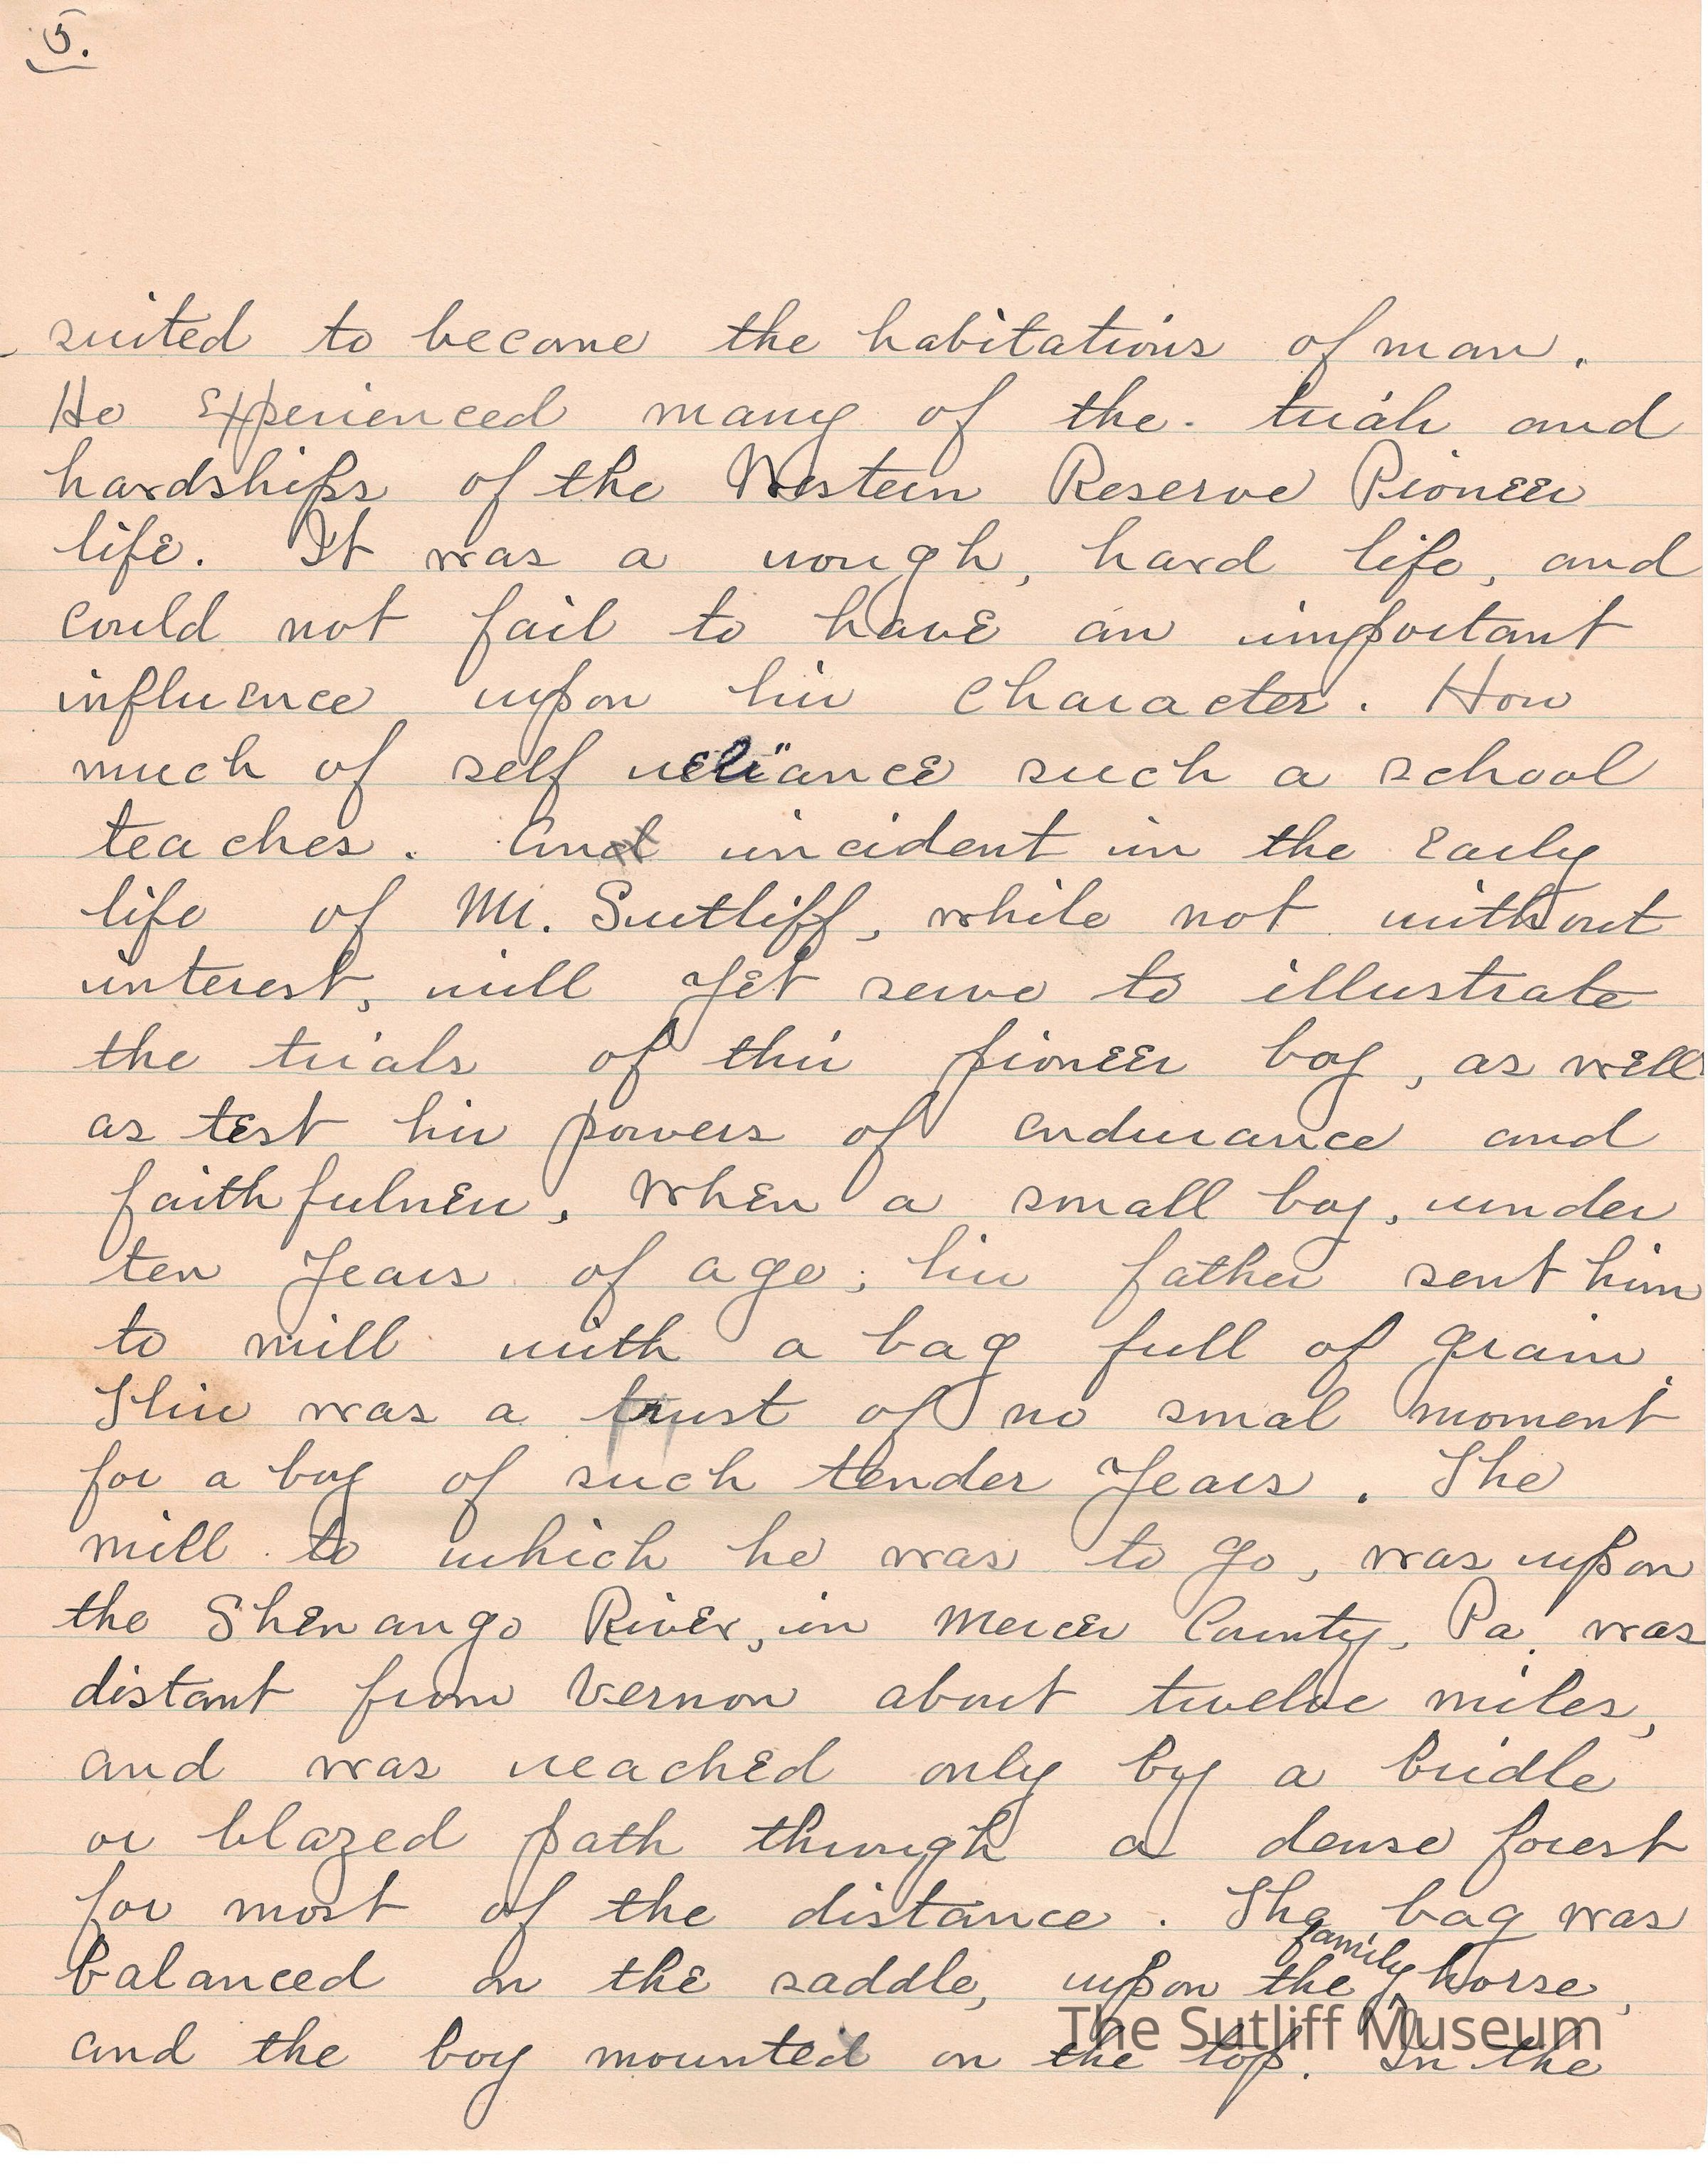 5.
suited to become the habitations of man.
He experienced many of the trials and
hardships of the Western Reserve Pioneer
life. It was a rough, hard life, and
could not fail to have an important
influence upon his character. How
much of self reliance such a school
teaches. An incident in the early
life of Mr. Sutliff, while not without
interest, will yet serve to illustrate
the trials of this pioneer boy, as well
as test his powers of endurance and
faithfulness, when a small boy, under
ten years of age, his father sent him
to mill with a bag full of grain.
This was a trust of no smal moment
for a boy of such tender years. The
mill to which he was to go, was upon
the Shenango River, in Mercer County, Pa. was
distant from Vernon about twelve miles,
and was reached only by a bridle
or blazed path through a dense forest
for most of the distance. The bag was
balanced on the saddle, upon the family horse,
and the boy mounted on the top. In the
The Sutliff Museum